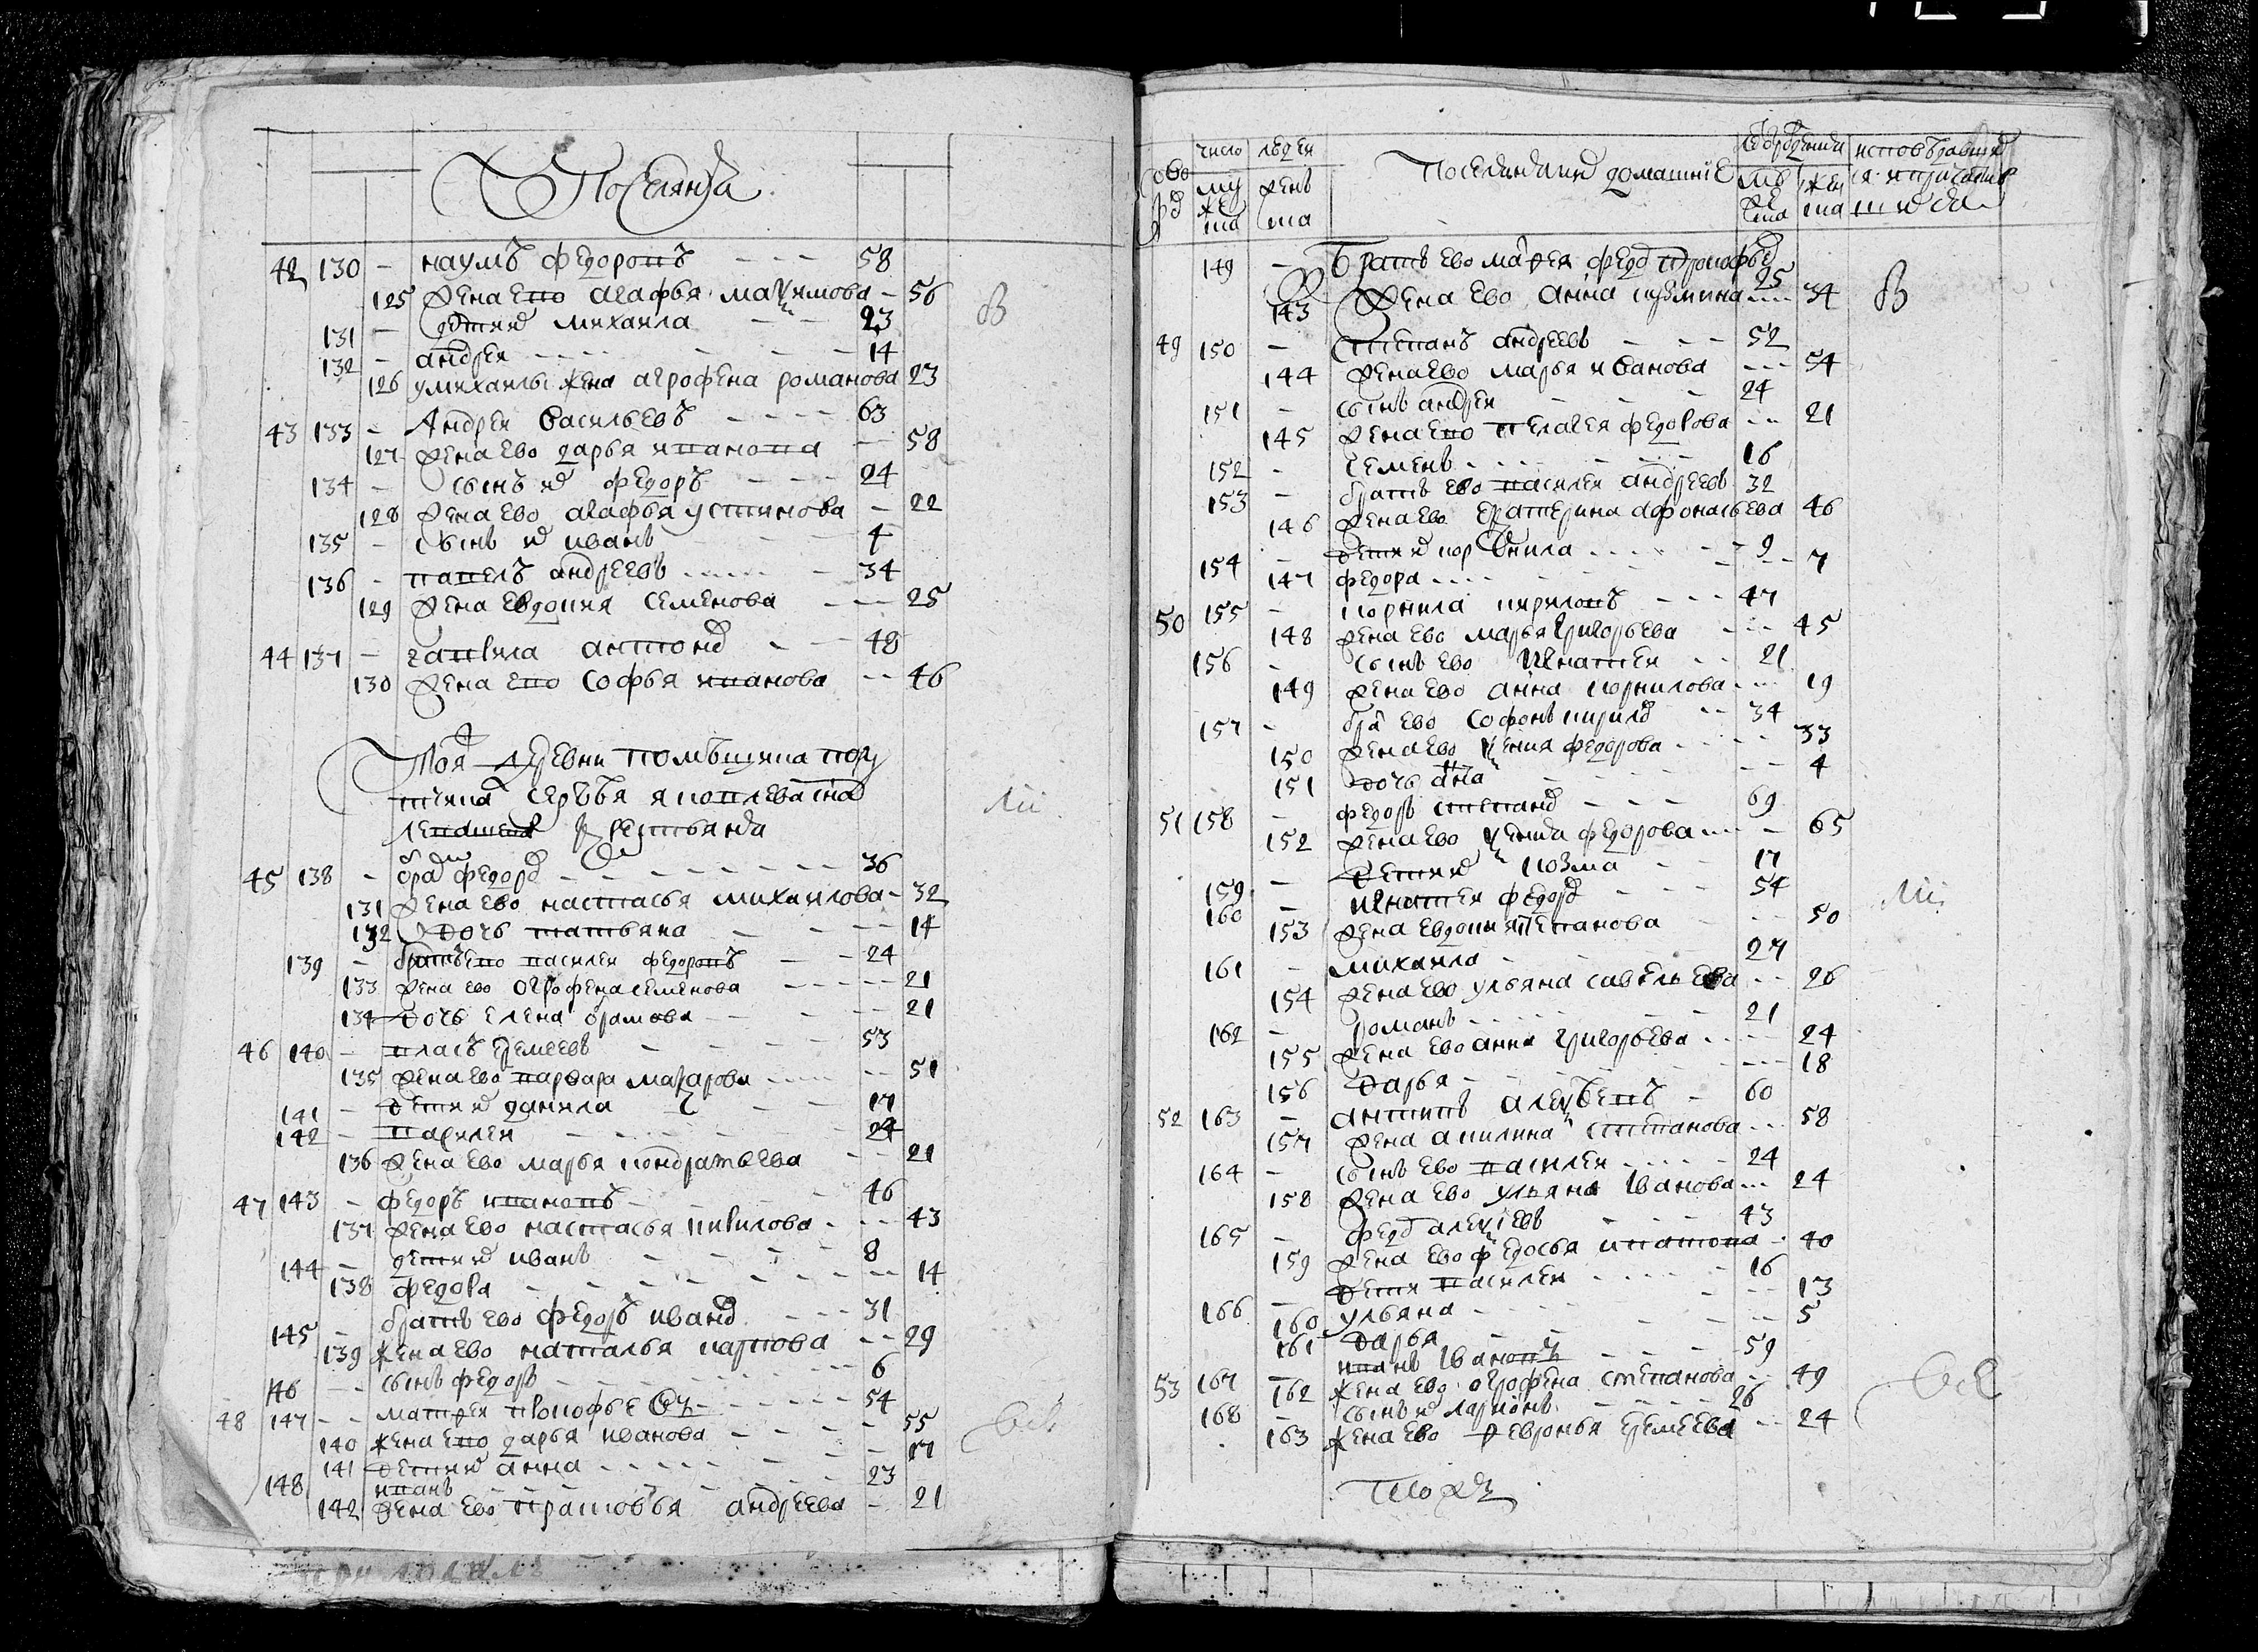 Поселянꙗ
42 130 - наумъ федоровъ - - - 58
125 жена ево агафья маѯимова - 56
131 - дети их михаила - - 23
132 - андреи - - - - 14
126 у михаилы жена агрофена романова 23
43 133 - Андреи Васильевъ - - - - 63
127 жена ево дарья иванова - 58
134 - сынъ их федоръ - - - 24
128 жена ево агафья устинова - 22
135 - сынъ их иванъ 4
136 - павелъ андреевъ - - - - 34
129 жена евдокия семенова - - - 25
44 137 - гаврила антонов - - - 48
130 жена ево софья иванова - - 46
Тоя деревни помѣщика пору
тчика сергѣя яковлева сна
крестьяня
45 138 - федоров - - - - 36
131 жена ево настасья михаилова - 32
132 дочь татьяна - - - 14
139 - братъ ево василеи федоровъ - - 24
133 жена ево огрофена семенова - - - - 21
134 дочь елена братова - - - 21
46 140 - власъ еремеевъ - - - 53
135 жена ево варвара макарова - - - 51
141 - дети их данила - - - 17
142 - василеи - - - 24
136 жена ево марья кондратьева - - 21
47 143 - федоръ ивановъ - - - 46
137 жена ево настасья кирилова - - - 43
144 - дети их иванъ - - - 8
138 федора - - - - 14
145 - братъ ево федоръ иванов - - - 31
139 жена ево наталья карпова - - 29
146 - - сынъ федоръ - - - 6
48 147 - - матвеи прокофьевъ - - - 54
140 жена ево дарья иванова - - - 55
141 дети их анна - - - - 17
148 иванъ - - - 23
142 жена ево прасковья андреева - 21
число людеи
дво
ры
му
же
ска
жен
ска
Поселяня и их домашние
исповѣдавших
ся и причастив
149 - братъ ево 25
143 Жена ево анна кузмина - - - 34
49 150 - степанъ андреевъ - - - 52
144 жена ево марья иванова - - - 54
151 - сынъ андреи - - - 24
145 жена ево пелагея федорова - - 21
152 - семенъ - - - - 16
153 - братъ ево василеи андреевъ 32
146 жена ево екатерина афонасьева 46
154 - дети их корнила - - - 9
147 федора - - - - 7
50 155 - корнила кириловъ - - - 47
148 жена ево марья григорьева - - - 45
156 - сынъ ево игнатеи - - 21
149 жена ево анна корнилова - - - 19
157 - бра ево софонъ кирилов - - 34
150 жена ево ѯения федорова - - - 33
151 дочь анна - - - 4
51 158 - федоръ степанов - - - 69
152 жена ево ѯения федорова - - - 65
159 - дети их козма - - 17
160 - игнатеи федоров - - - 54
153 жена евдокия степанова - - 50
161 - михаила - - 27
154 жена ево ульяна савельева - - 26
162 - романъ - - - - 21
155 жена ево анна григорьева - - - 24
156 дарья - - - 18
52 163 - антипъ алеѯѣевъ - 60
157 жена акилина степанова - - - 58
164 - сынъ ево василеи - - - - 24
158 жена ево ульяна иванова - - - 24
165 - федо алеѯѣевъ - - - 43
159 жена ево федосья - 40
166 - дети василеи - - - - 16
160 ульяна - - - - 13
161 дарья - - - 5
53 167 - иванъ ивановъ - - - 59
162 жена ево огрофена степанова - - 49
168 - сынъ их ларионъ - - - 26
163 жена ево февронья еремеева - - 24